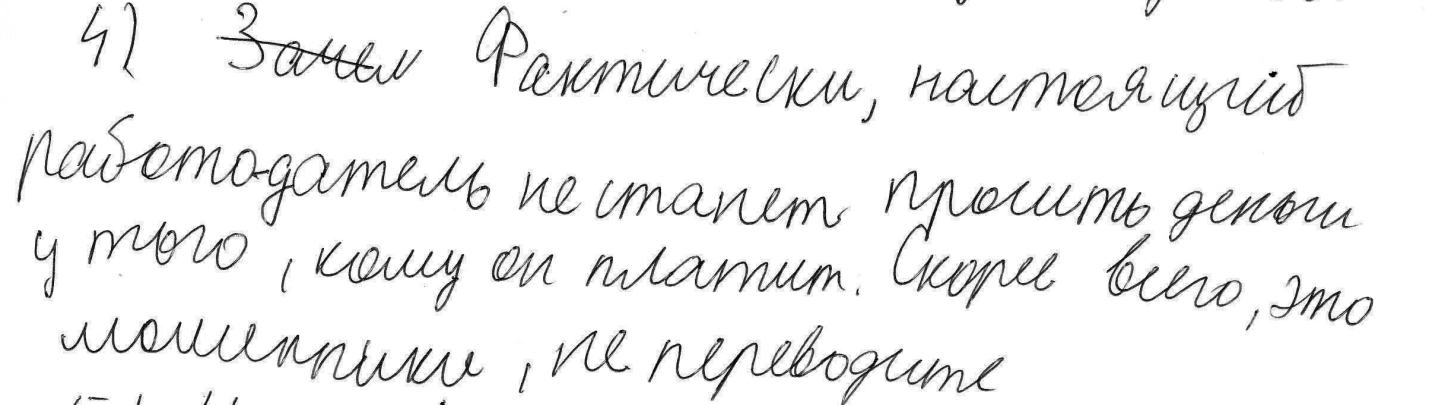 4) Зачем Фактически, настоящий
работодатель не станет просить деньги
у того, кому он платит. Скорее всего, это
мошенники, не переводите